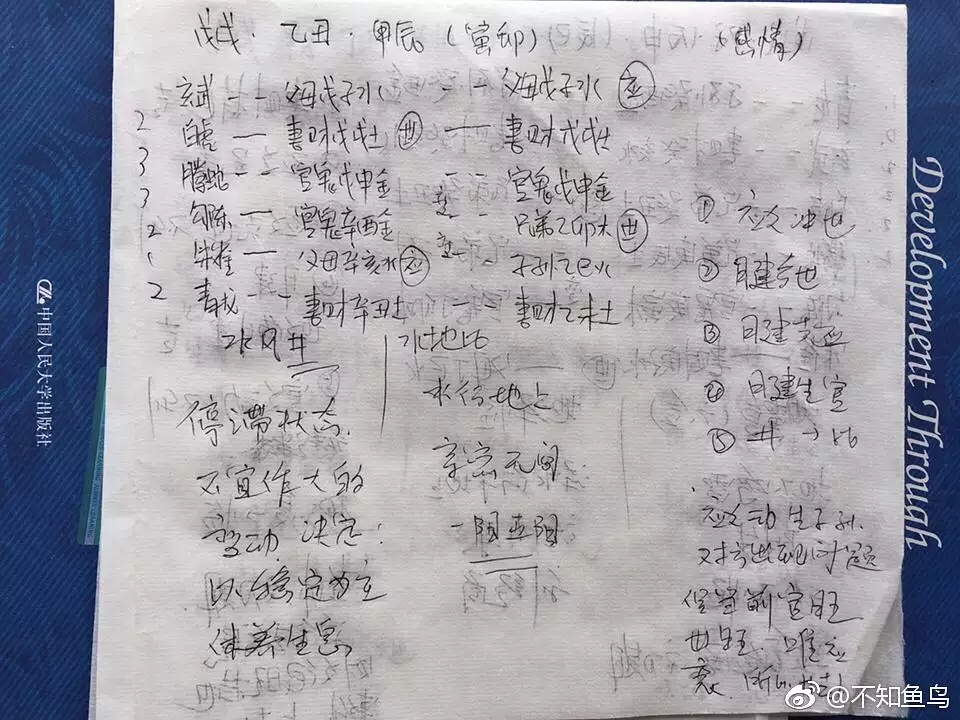 戊戌·乙丑·甲辰(寅卯) (感情)
玄武 -- 父母戊子水 -- 父母戊子水 应
2 白虎 — 妻财戊戌土 世 — 妻财戊戌土
3 腾蛇 -- 官鬼戊申金 -- 官鬼戊申金
3 勾陈 — 官鬼辛酉金 -- 兄弟乙卯木 世
2 朱雀 — 父母辛亥水 应 -- 子孙乙巳火
2 青龙 -- 妻财辛丑土 -- 妻财乙未土
水风井
水地比
停滞状态.
不宜作大的
变动 决定:
以稳定为主
休养生息
水行地上
亲密无间
一阳五阴
① 应爻冲世
② 日建合世
③ 月建克应
④ 月建生官
⑤ 井→比
应爻动生子孙.
对方出现问题
但宜前官旺
世旺. 唯应
衰.
中国人民大学出版社
Development Through
@不知鱼鸟